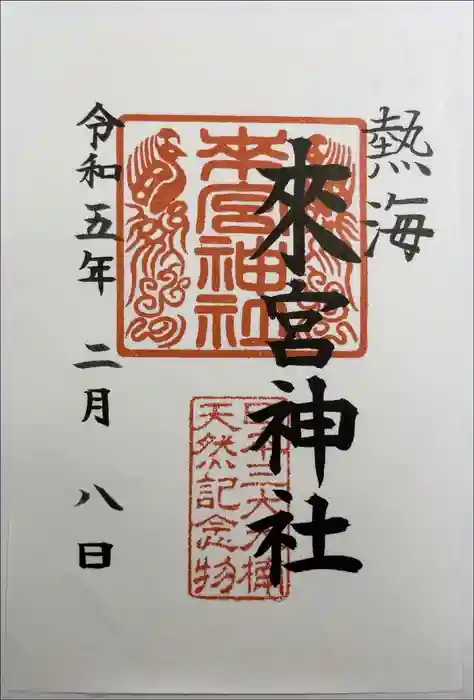 熱海
來宮神社
令和五年 二月 八日
來宮神社
日本三大大楠
天然記念物